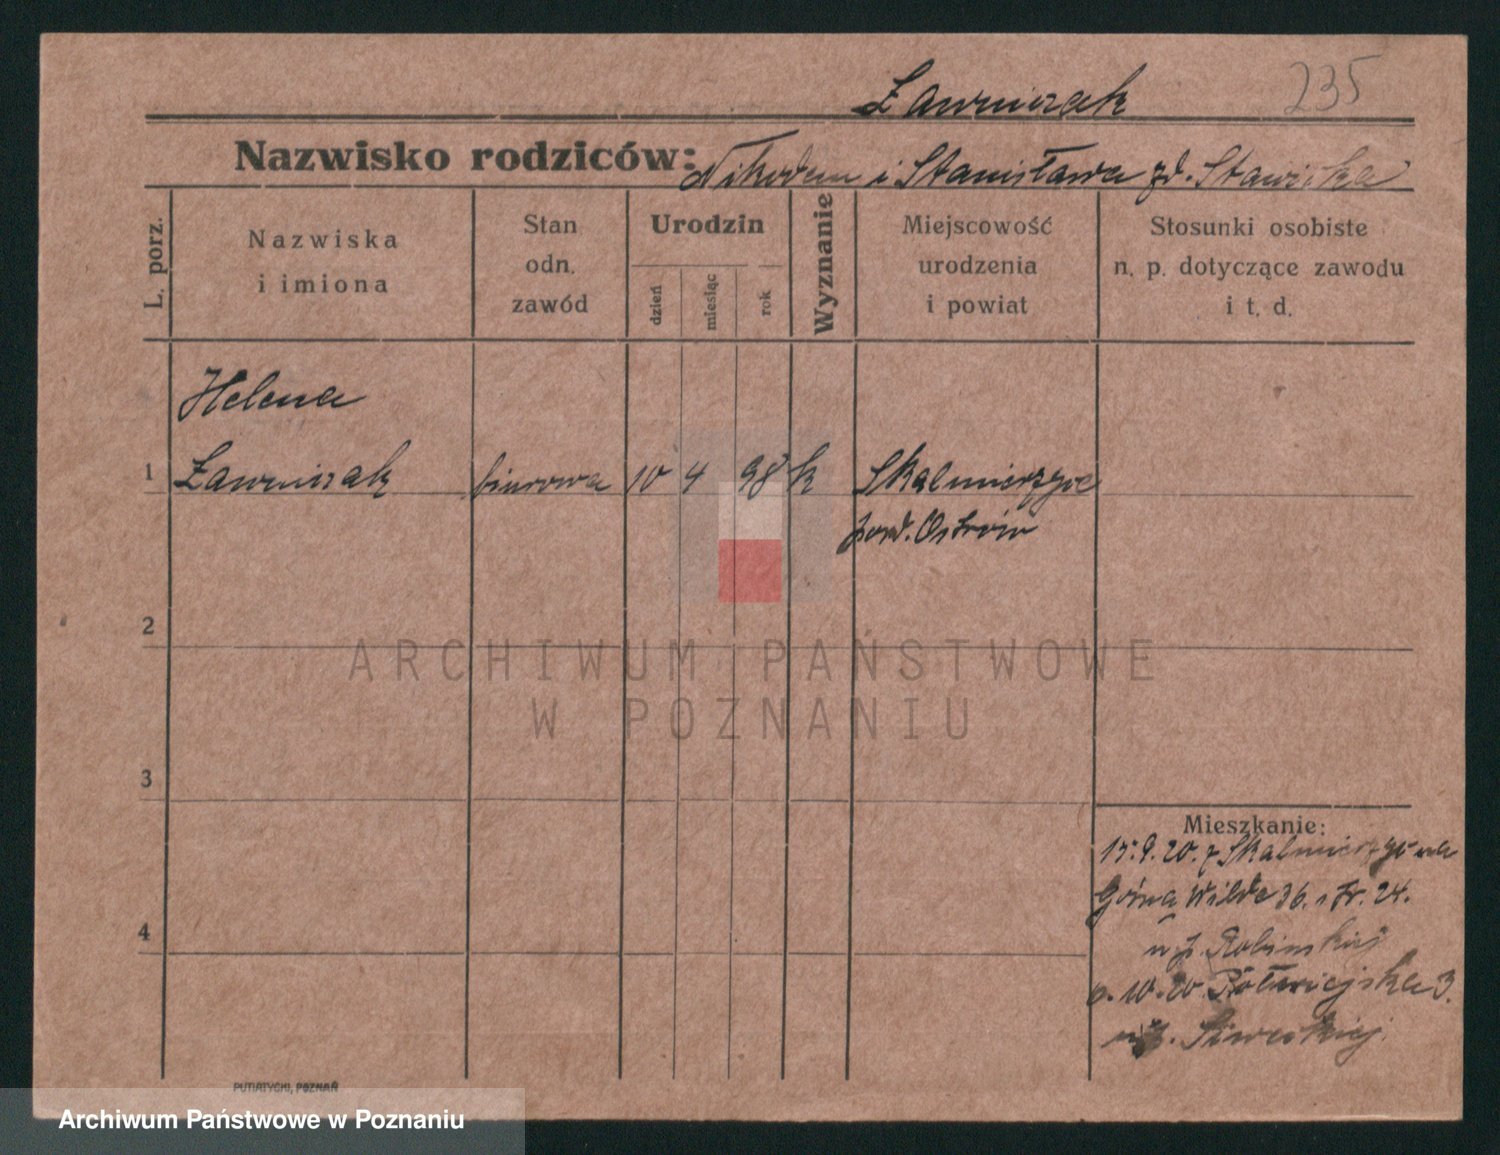 Ławniczak 235
Nazwisko rodziców: Nikodem i Stanisława zd. Stawicka
L. porz.
Nazwiska
i imiona
Stan
odn.
zawód
Urodzin
dzień
miesiąc
rok
Wyznanie
Miejscowość
urodzenia
i powiat
Stosunki osobiste
n. p. dotyczące zawodu
i t. d.
Helena
1 Ławniczak biurowa 10 4 98 k Skalmierzyce
pow. Ostrów
2
3
4
Mieszkanie:
9.20. z Skalmierzyc na
Górna Wilda 36. Fr. 24.
u p.
6.10.20 Półwiejska 3.
PUTIATYCKI, POZNAŃ
ARCHIWUM PAŃSTWOWE
W POZNANIU
Archiwum Państwowe w Poznaniu